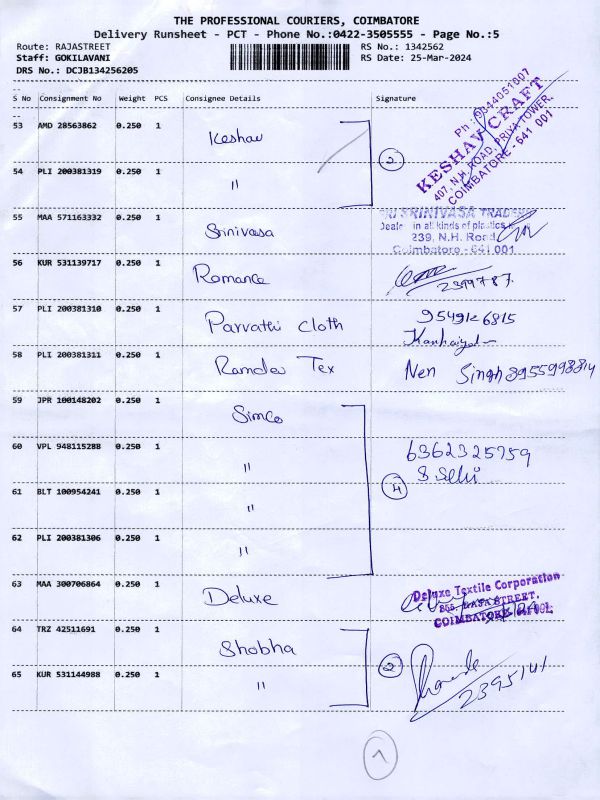 THE PROFESSIONAL COURIERS, COIMBATORE
Delivery Runsheet - PCT - Phone No.:0422-3505555 - Page No.:5
Route: RAJASTREET
Staff: GOKILAVANI
DRS No.: DCJB134256205
RS No.: 1342562
RS Date: 25-Mar-2024
S No Consignment No Weight PCS Consignee Details Signature
53 AMD 28563862 0.250 1 Keshav
54 PLI 200381319 0.250 1 "
2
Ph : 9344051007
KESHAV CRAFT
407, N.H. ROAD, PRIYA TOWER,
COIMBATORE - 641 001
55 MAA 571163332 0.250 1 Srinivasa
SRI SRINIVASA TRADERS
Dealer in all kinds of plastics
239, N.H. Road
Coimbatore - 641 001
56 KUR 531139717 0.250 1 Romance
2399787.
57 PLI 200381310 0.250 1 Parvathi cloth
9549126815
Kanhaiyal
58 PLI 200381311 0.250 1 Ramdev Tex Nen Singh 8955998814
59 JPR 100148202 0.250 1 Simco
60 VPL 948115288 0.250 1 "
6362325759
S. Selvi
61 BLT 100954241 0.250 1 "
4
62 PLI 200381306 0.250 1 "
63 MAA 300706864 0.250 1 Deluxe
Deluxe Textile Corporation
RAJA STREET,
COIMBATORE
64 TRZ 42511691 0.250 1 Shobha
2
65 KUR 531144988 0.250 1 "
2395141